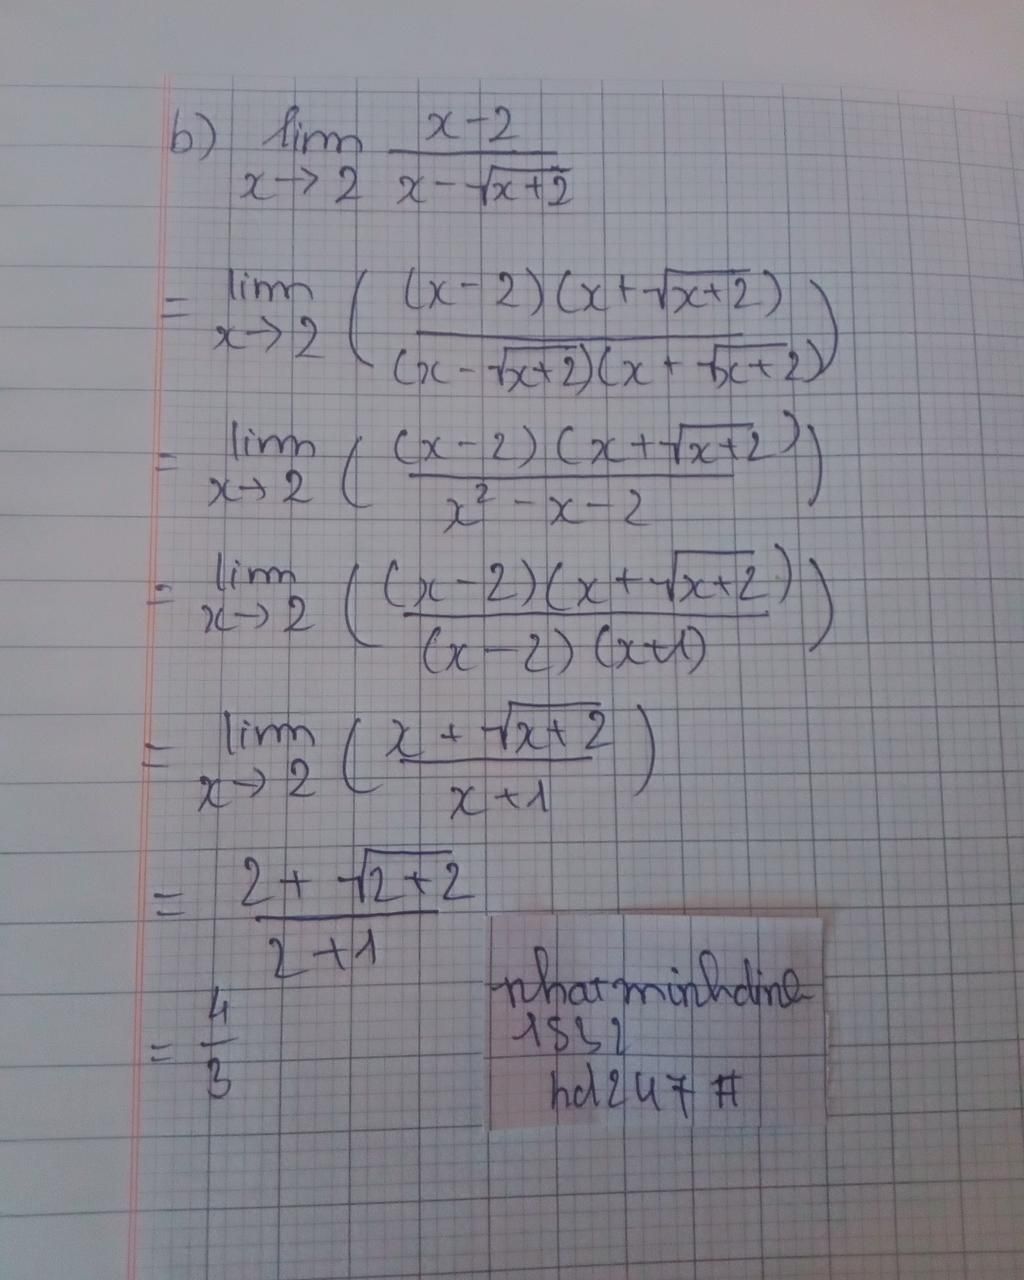 b) lim x→2 (x-2)/(x-√(x+2))
= lim x→2 ( ((x-2)(x+√(x+2)))/((x-√(x+2))(x+√(x+2))) )
= lim x→2 ( ((x-2)(x+√(x+2)))/(x²-x-2) )
= lim x→2 ( ((x-2)(x+√(x+2)))/((x-2)(x+1)) )
= lim x→2 ( (x+√(x+2))/(x+1) )
= (2+√(2+2))/(2+1)
= 4/3
hd247 #